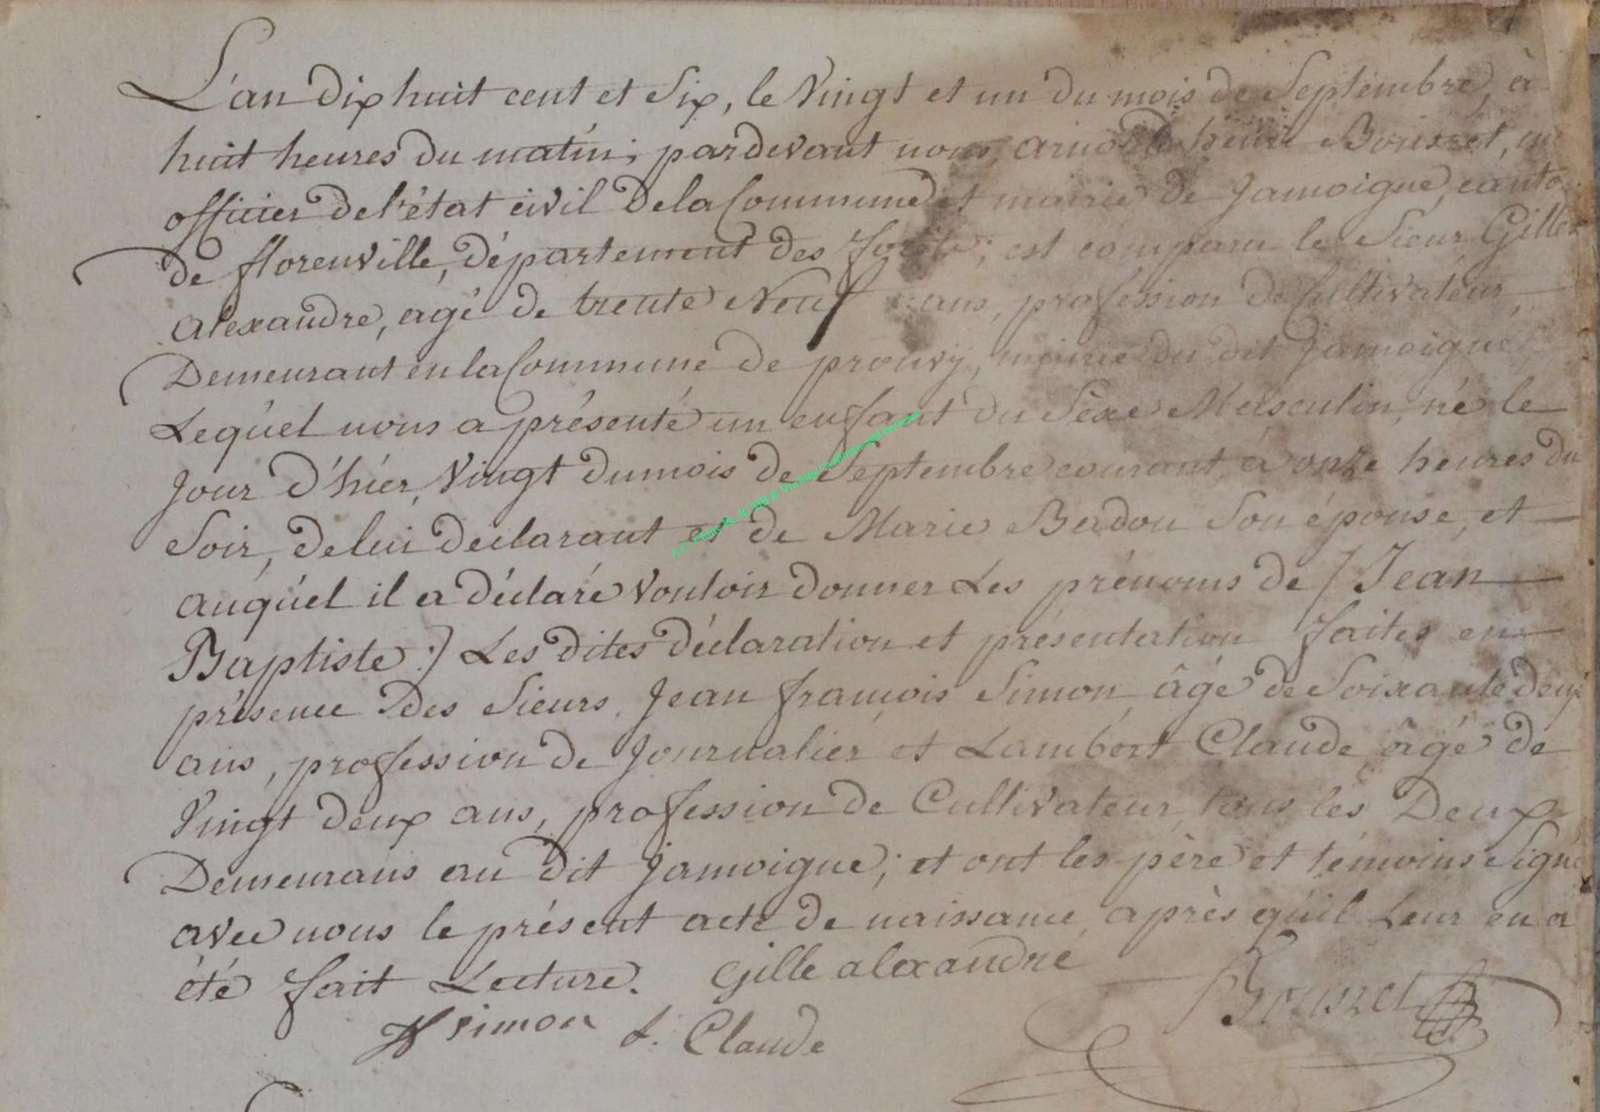 L'an dix huit cent et Six, le Vingt et un du mois de Septembre, à
huit heures du matin; pardevant nous, arnould henri Bourset,
officier de l'état civil De la Commune et mairie de Jamoigne, canton
de florenville, département des Forêts; est comparu le Sieur Gilles
alexandre, agé de trente Neuf ans, profession de Cultivateur,
Demeurant en la Commune de prouvy, mairie du dit Jamoigne,
Lequel nous a présenté un enfant du Sèxe Masculin, né le
Jour d'hier, Vingt du mois de Septembre courant à onze heures du
Soir, de lui déclarant et de Marie Badou Son épouse, et
auquel il a déclaré Vouloir donner Les prénoms de / Jean
Baptiste :/ Les dites déclaration et présentation faites en
présence Des Sieurs, Jean françois Simon, âgé de Soixante deux
ans, profession de Journalier et Lambert Claude âgé de
Vingt deux ans, profession de Cultivateur, tous les Deux
Demeurans au dit Jamoigne; et ont les père et témoins Signé
avec nous le présent acte de naissance, après qu'il Leur en a
été fait Lecture. Gille alexandre
Simon L. Claude Bourset